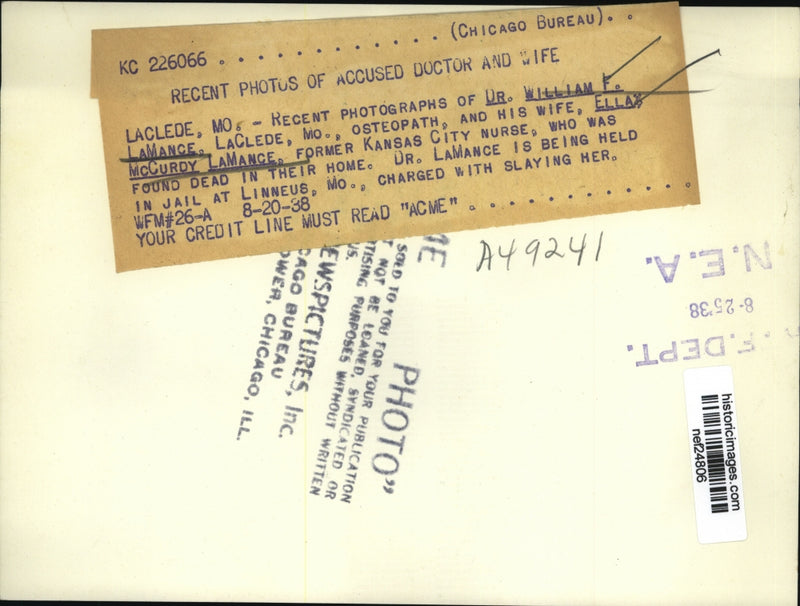 KC 226066 . . . . . . . . . . . . (CHICAGO BUREAU). .
RECENT PHOTOS OF ACCUSED DOCTOR AND WIFE
LACLEDE, MO. - RECENT PHOTOGRAPHS OF DR. WILLIAM F.
LAMANCE, LACLEDE, MO., OSTEOPATH, AND HIS WIFE, ELLA
MCCURDY LAMANCE, FORMER KANSAS CITY NURSE, WHO WAS
FOUND DEAD IN THEIR HOME. DR. LAMANCE IS BEING HELD
IN JAIL AT LINNEUS, MO., CHARGED WITH SLAYING HER.
WFM#26-A 8-20-38
YOUR CREDIT LINE MUST READ "ACME" . . . . . . . . . . .
A49241
ME
PHOTO"
SOLD TO YOU FOR YOUR PUBLICATION
NOT BE LOANED, SYNDICATED OR
PURPOSES WITHOUT WRITTEN
EWSPICTURES, INC.
CAGO BUREAU
OWER, CHICAGO, ILL.
N.E.A.
8-25'38
F. DEPT.
historicimages.com
nef24806